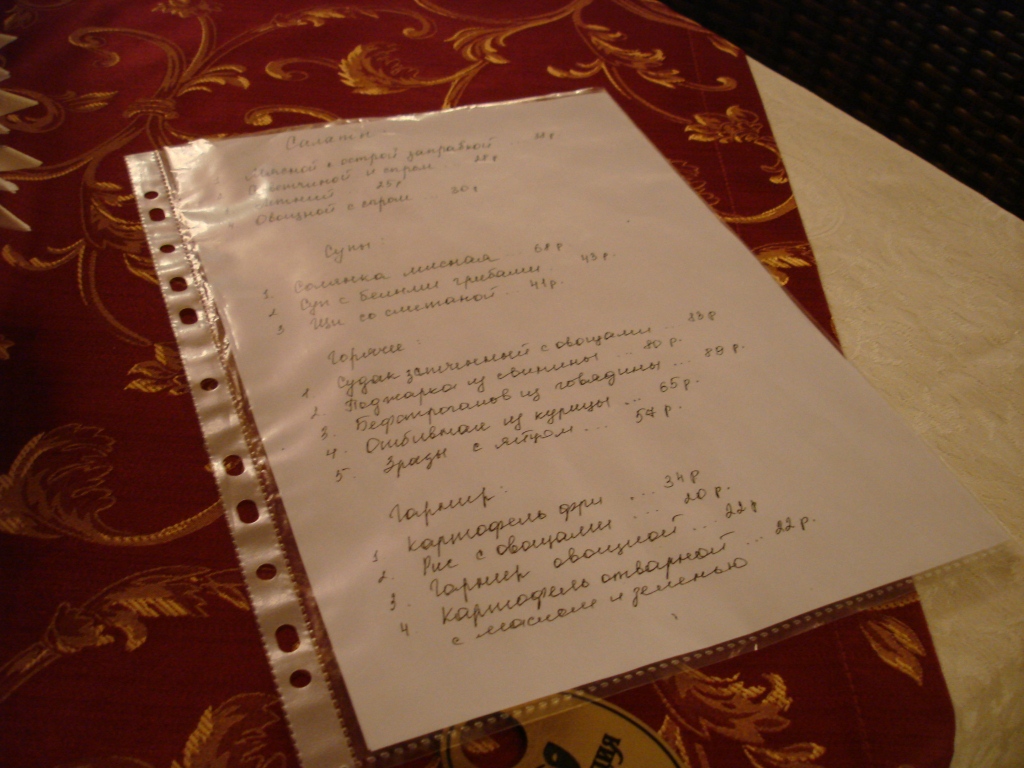 Салаты
Мясной с острой заправкой ...
с ветчиной и сыром ... 28р
Летний 25р
Овощной с сыром ... 30р
Супы:
1. Солянка мясная ... 68р.
2. Суп с белыми грибами ... 43р.
3 Щи со сметаной ... 41р.
Горячие:
1. Судак запеченный с овощами ... 83р
2. Поджарка из свинины ... 80р.
3. Бефстроганов из говядины ... 89р.
4. Отбивная из курицы ... 65р.
5. Зразы с яйцом ... 57р.
Гарнир:
1 Картофель фри ... 34р
2. Рис с овощами ... 20р.
3. Гарнир овощной ... 22р
4 Картофель отварной ... 22р.
с маслом и зеленью